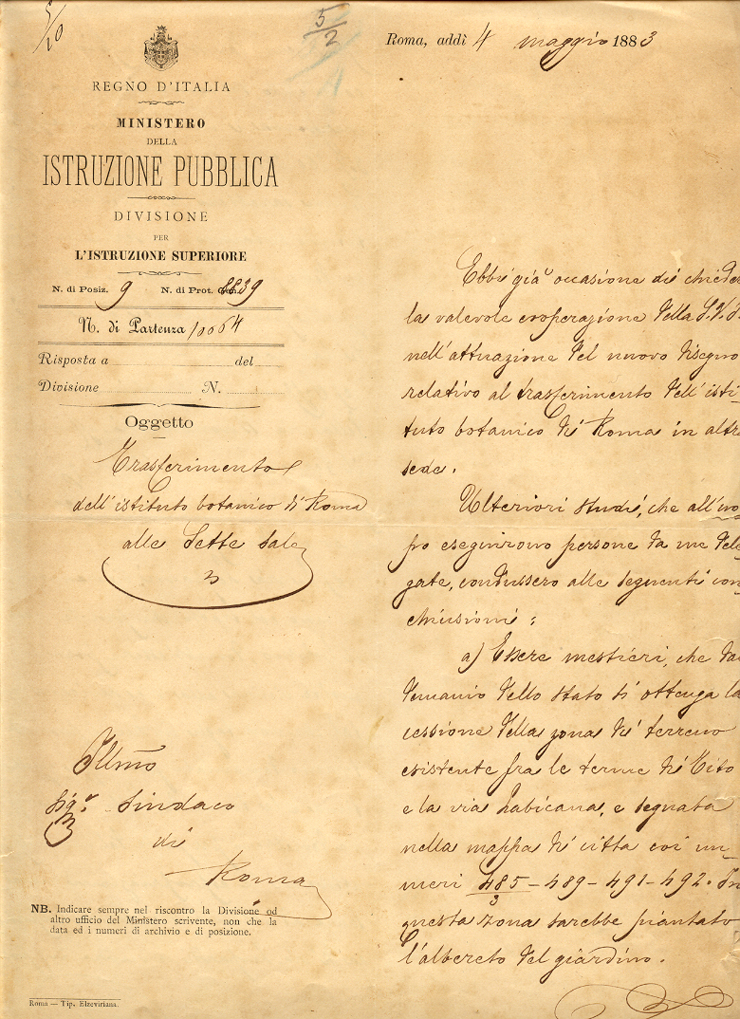 5/10
5/2
REGNO D'ITALIA
MINISTERO
DELLA
ISTRUZIONE PUBBLICA
DIVISIONE
PER
L'ISTRUZIONE SUPERIORE
N. di Posiz. 9 N. di Prot. 8839
N. di Partenza 10064
Risposta a del
Divisione N.
Oggetto
Trasferimento
dell'istituto botanico di Roma
alle Sette Sale
Illmo
Sigr. Sindaco
di
Roma
NB. Indicare sempre nel riscontro la Divisione od
altro ufficio del Ministero scrivente, non che la
data ed i numeri di archivio e di posizione.
Roma — Tip. Elzeviriana.
Roma, addì 4 maggio 1883
Ebbi già occasione di chieder
la valevole cooperazione della S.V.
nell'attuazione del nuovo disegno
relativo al trasferimento dell'isti-
tuto botanico di Roma in altra
sede.
Ulteriori studi, che all'uo
po eseguirono persone da me dele
gate, condussero alle seguenti con
chiusioni:
a) Essere mestieri, che dal
demanio dello Stato si ottenga la
cessione della zona di terreno
esistente fra le terme di Tito
e la via Labicana, e segnata
nella mappa di città coi nu-
meri 485/3 - 489 - 491 - 492. In
questa zona sarebbe piantato
l'albereto del giardino.